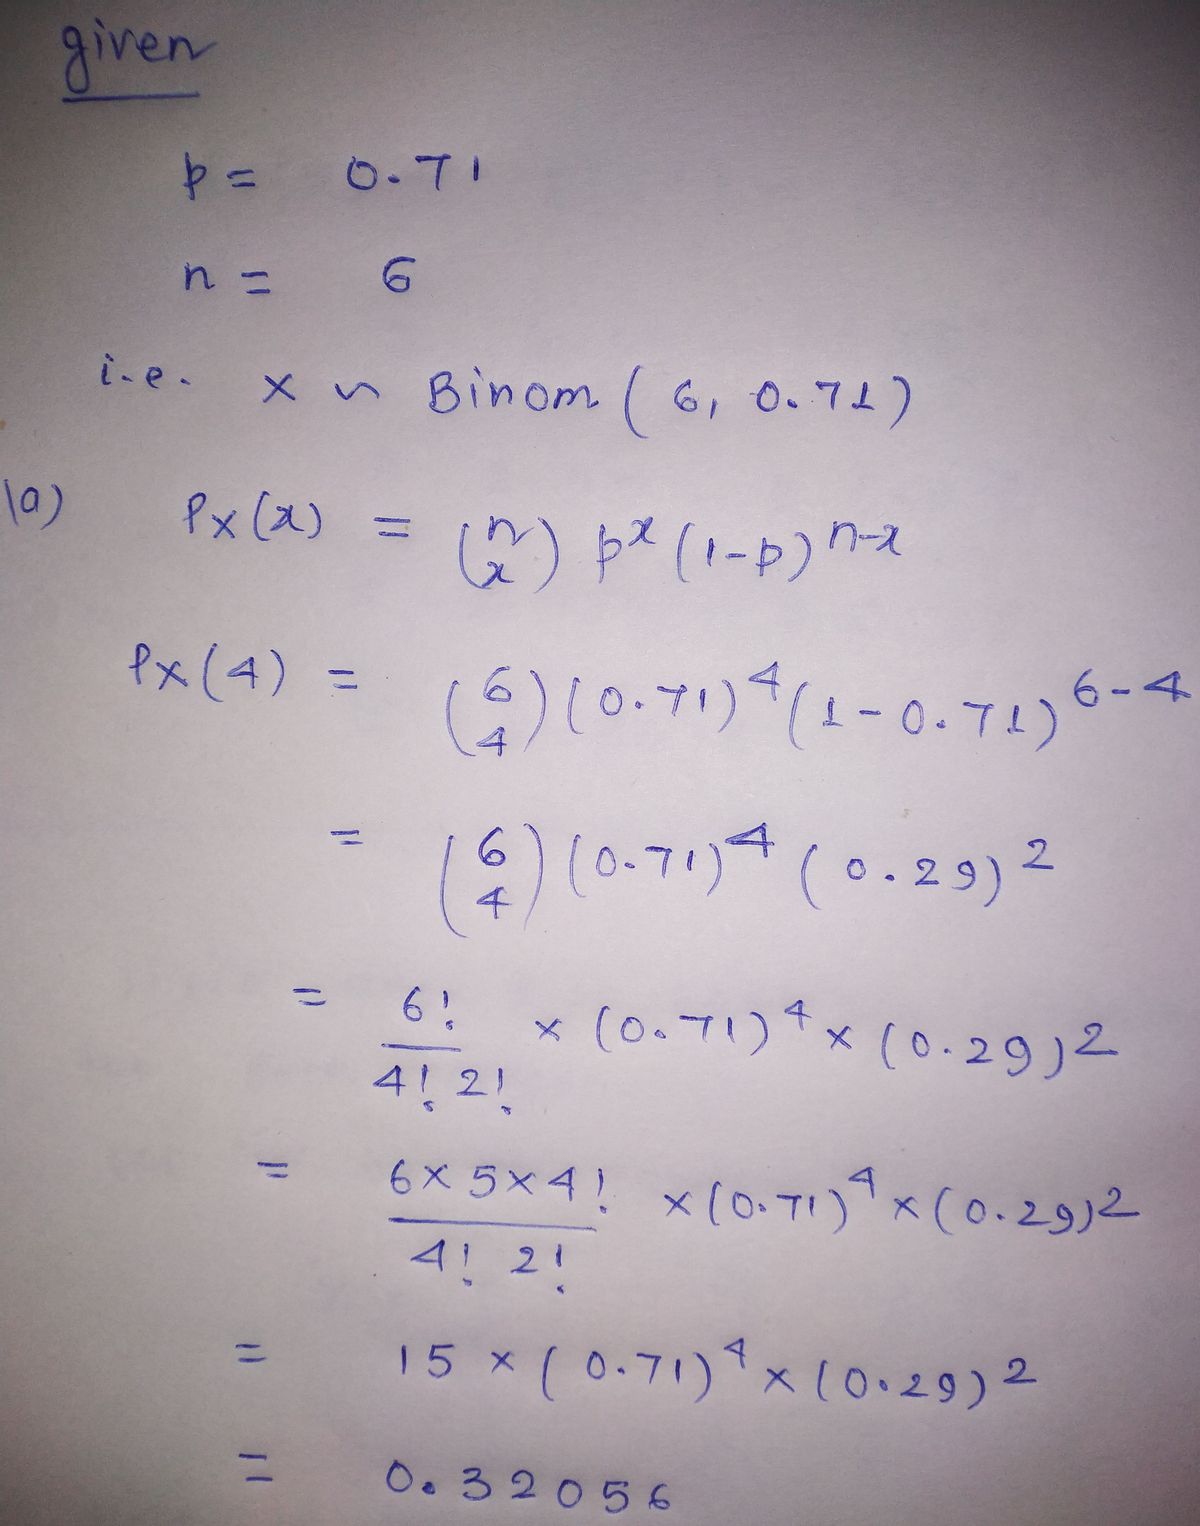 given
p = 0.71
n = 6
i.e. x ~ Binom (6, 0.71)
1a) Px(x) = (n x) p^x (1-p)^n-x
Px(4) = (6 4) (0.71)^4 (1-0.71)^6-4
= (6 4) (0.71)^4 (0.29)^2
= 6! / 4! 2! × (0.71)^4 × (0.29)^2
= 6×5×4! / 4! 2! × (0.71)^4 × (0.29)^2
= 15 × (0.71)^4 × (0.29)^2
= 0.32056